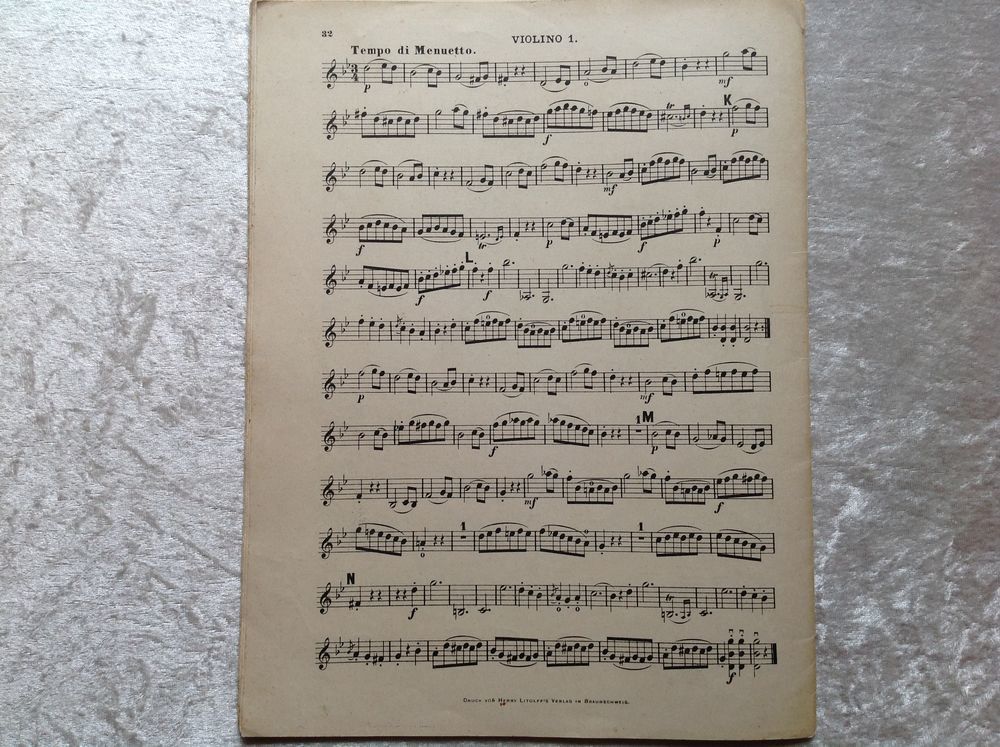 32
VIOLINO 1.
Tempo di Menuetto.
3
4
p
mf
K
tr
f
p
mf
f
tr
p
f
p
L
f
f
tr
p
mf
1 M
f
p
mf
f
1
1
N
f
f
DRUCK VON HENRY LITOLFF'S VERLAG IN BRAUNSCHWEIG.